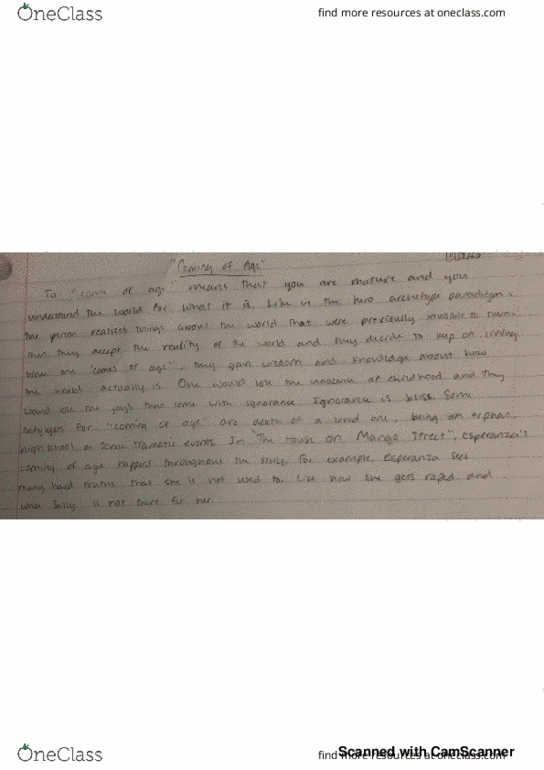 OneClass
find more resources at oneclass.com
"Coming of Age"
To "come of age" means that you are mature and you
understand the world for what it is. Like in the hero archetype paradigm,
the person realizes things about the world that were previously invisible to them.
Then they accept the reality of the world and they decide to keep on
When one "comes of age", they gain wisdom and knowledge about how
the world actually is. One would lose the innocence of childhood and they
would lose the joys that come with ignorance. Ignorance is bliss. Some
catalysts for "coming of age" are death of a loved one, being an orphan,
high school, or some tramatic events. In "The House on Mango Street", Esperanza's
coming of age happens throughout the story. For example, Esperanza sees
many hard truths that she is not used to. Like how she gets raped and
when Sally is not there for her.
OneClass
find more resources at oneclass.com
Scanned with CamScanner